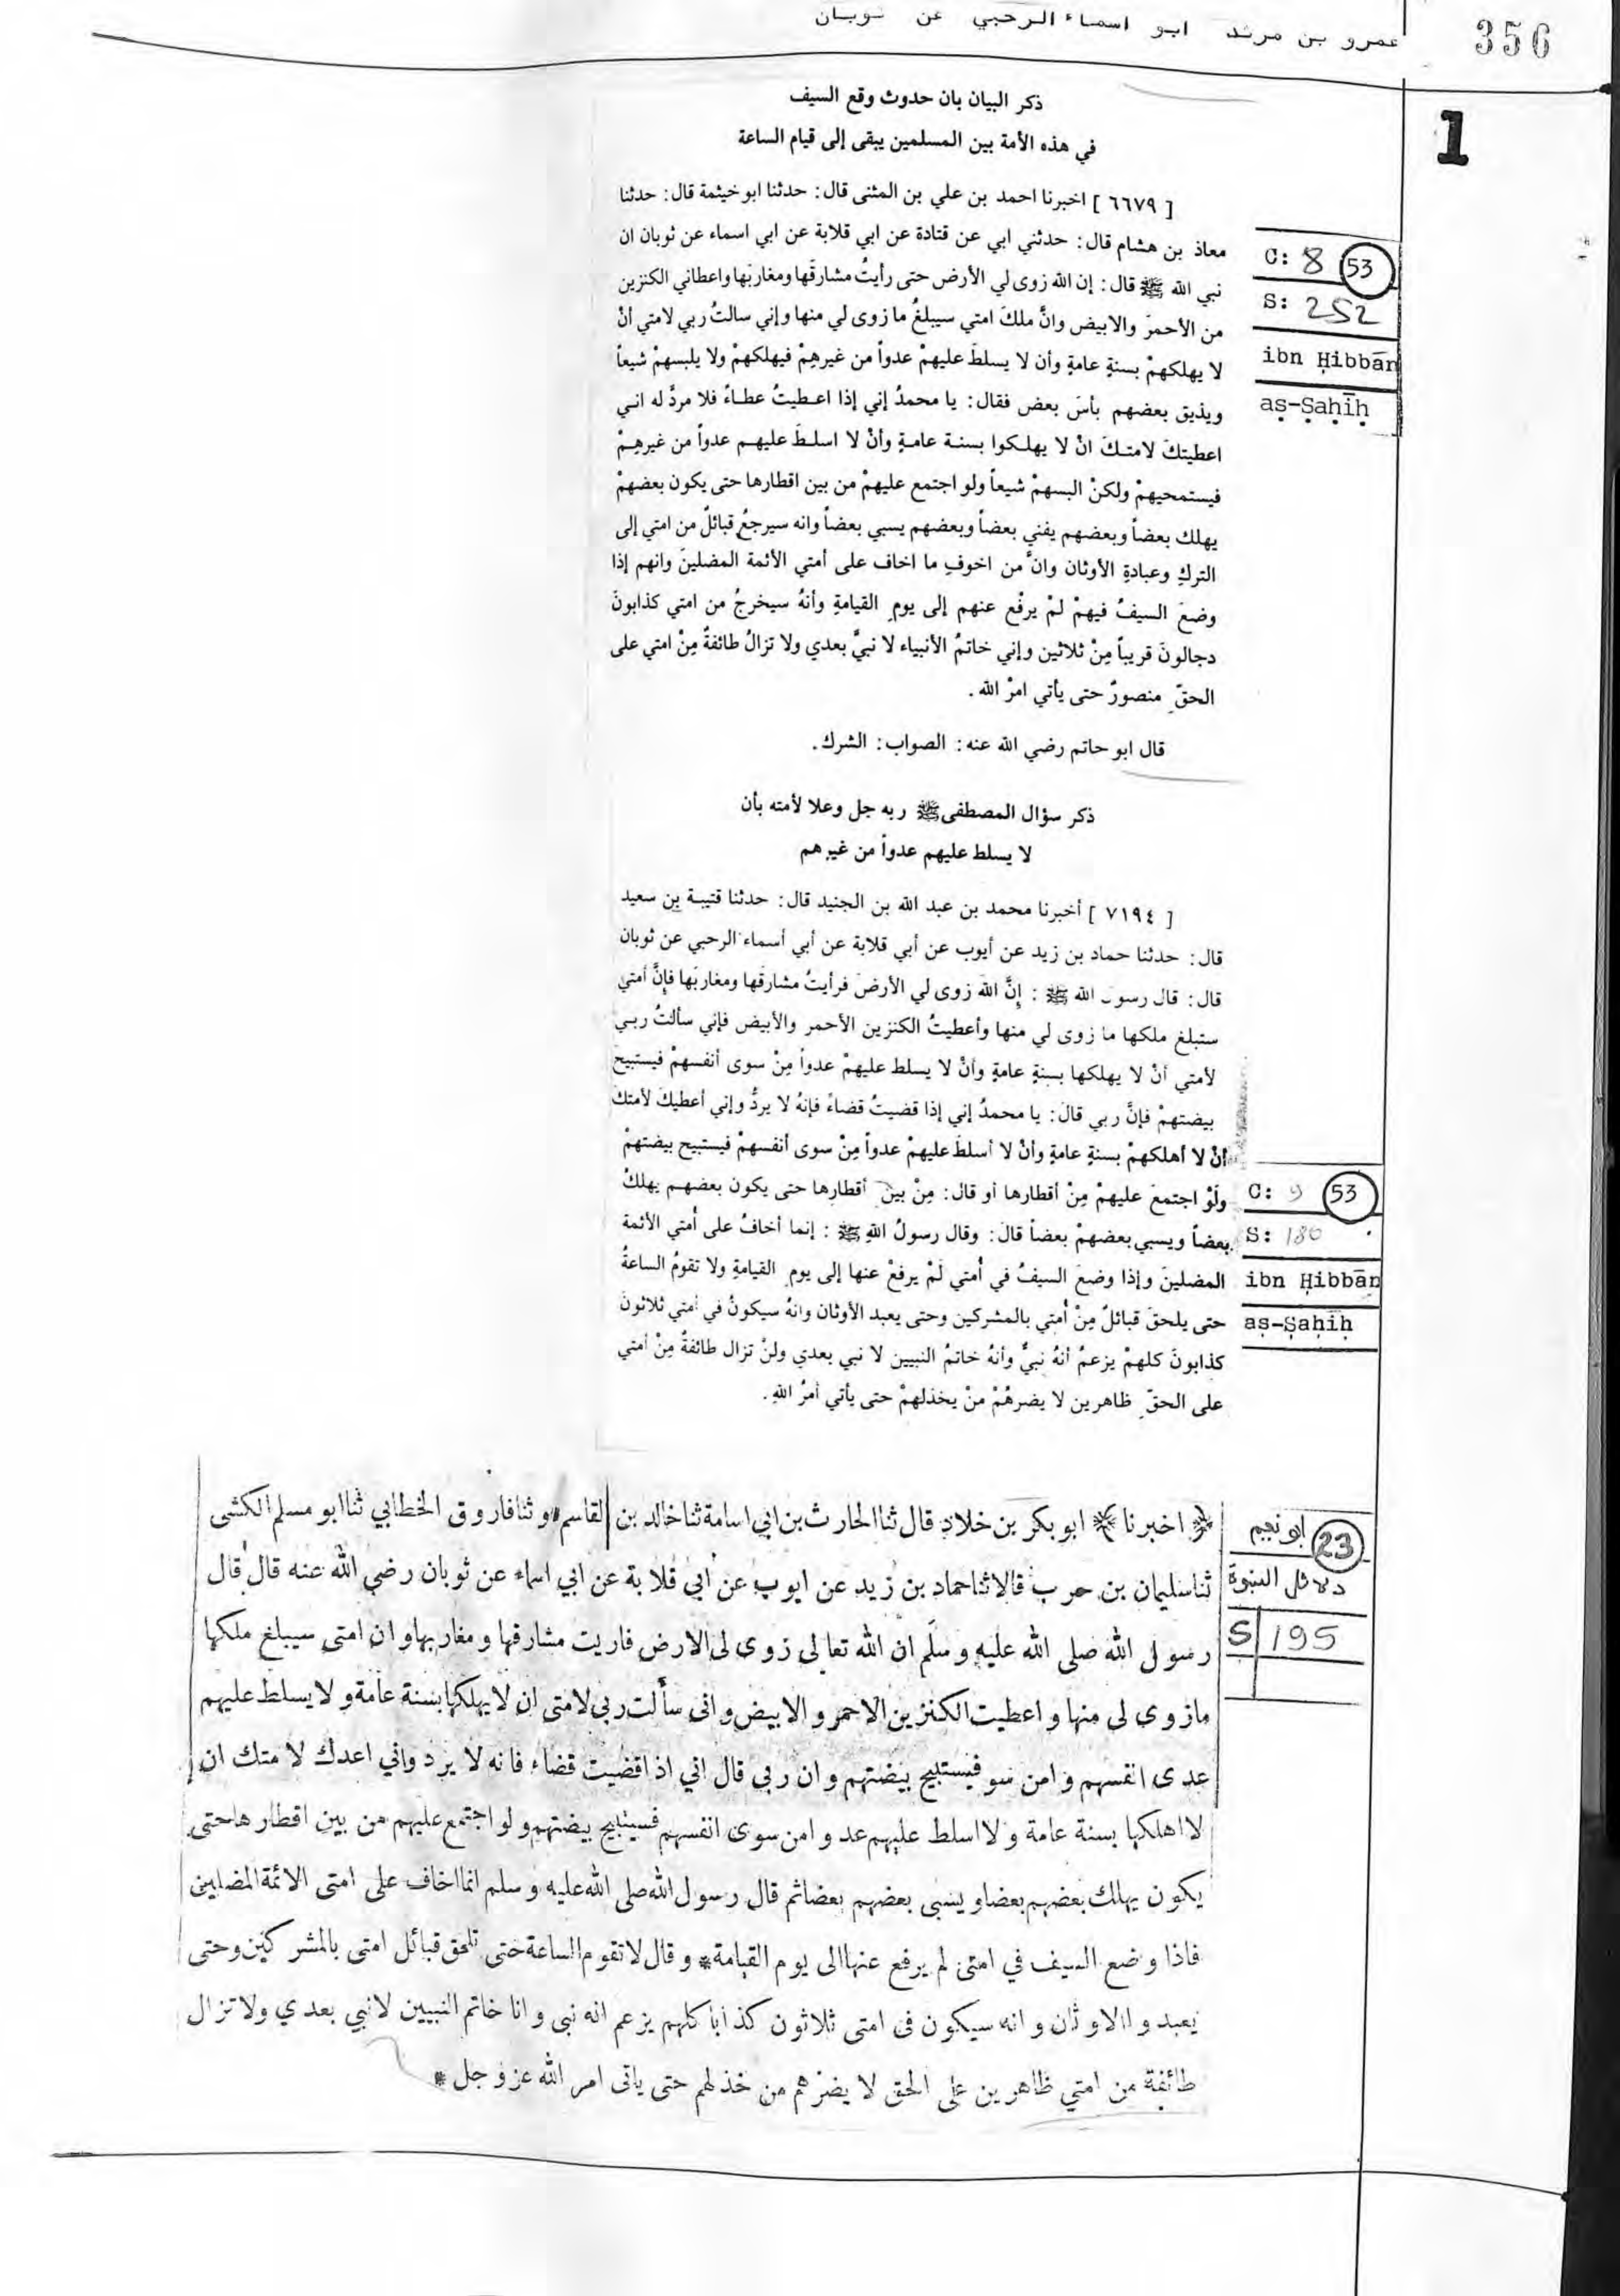 عمرو بن مرثد ابو اسماء الرحبي عن ثوبان
356
1
ذكر البيان بان حدوث وقع السيف
في هذه الأمة بين المسلمين يبقى إلى قيام الساعة
[ ٦٦٧٩ ] اخبرنا احمد بن علي بن المثنى قال: حدثنا ابو خيثمة قال: حدثنا
معاذ بن هشام قال: حدثني ابي عن قتادة عن ابي قلابة عن ابي اسماء عن ثوبان ان
نبي الله ﷺ قال: إن الله زوى لي الأرض حتى رأيتُ مشارقَها ومغاربَها واعطاني الكنزين
من الأحمرَ والابيض وانَّ ملكَ امتي سيبلغُ ما زوى لي منها وإني سالتُ ربي لامتي أنْ
لا يهلكهمْ بسنةٍ عامةٍ وأن لا يسلطَ عليهمْ عدواً من غيرهِمْ فيهلكهمْ ولا يلبسهمْ شيعاً
ويذيق بعضهم بأسَ بعض فقال: يا محمدُ إني إذا اعطيتُ عطاءً فلا مردَّ له اني
اعطيتكَ لامتكَ انْ لا يهلكوا بسنة عامةٍ وأنْ لا اسلطَ عليهم عدواً من غيرهِمْ
فيستمحيهمْ ولكنْ البسهمْ شيعاً ولو اجتمع عليهمْ من بين اقطارها حتى يكون بعضهمْ
يهلك بعضاً وبعضهم يفني بعضاً وبعضهم يسبي بعضاً وانه سيرجعُ قبائلٌ من امتي إلى
التركِ وعبادةِ الأوثان وانَّ من اخوفِ ما اخاف على أمتي الأئمة المضلينَ وانهم إذا
وضعَ السيفُ فيهمْ لمْ يرفْع عنهم إلى يومِ القيامةِ وأنهُ سيخرجُ من امتي كذابونَ
دجالونَ قريباً مِنْ ثلاثين وإني خاتمُ الأنبياء لا نبيَّ بعدي ولا تزالُ طائفةٌ مِنْ امتي على
الحقِّ منصورٌ حتى يأتي امرُ الله .
قال ابو حاتم رضي الله عنه: الصواب: الشرك.
C: 8 (53)
S: 252
ibn Ḥibbān
aṣ-Ṣaḥīḥ
ذكر سؤال المصطفى ﷺ ربه جل وعلا لأمته بأن
لا يسلط عليهم عدواً من غيرهم
[ ٧١٩٤ ] أخبرنا محمد بن عبد الله بن الجنيد قال: حدثنا قتيبة بن سعيد
قال: حدثنا حماد بن زيد عن أيوب عن أبي قلابة عن أبي أسماء الرحبي عن ثوبان
قال: قال رسول الله ﷺ : إنَّ اللهَ زوى لي الأرضَ فرأيتُ مشارقَها ومغاربَها فإنَّ أمتي
ستبلغ ملكها ما زوى لي منها وأعطيتُ الكنزين الأحمر والأبيض فإني سألتُ ربي
لأمتي أنْ لا يهلكها بسنةٍ عامةٍ وأنْ لا يسلط عليهمْ عدواً مِنْ سوى أنفسهمْ فيستبيحَ
بيضتهمْ فإنَّ ربي قالَ: يا محمدُ إني إذا قضيتُ قضاءً فإنهُ لا يردُّ وإني أعطيكَ لأمتكَ
أنْ لا أهلكهمْ بسنةٍ عامةٍ وأنْ لا أسلطَ عليهمْ عدواً مِنْ سوى أنفسهمْ فيستبيح بيضتهمْ
ولَوْ اجتمعَ عليهمْ مِنْ أقطارها أو قال: مِنْ بين أقطارها حتى يكون بعضهم يهلكُ
بعضاً ويسبي بعضهمْ بعضاً قالَ: وقال رسولُ اللهِ ﷺ : إنما أخافُ على أُمتي الأئمة
المضلينَ وإذا وضعَ السيفُ في أُمتي لَمْ يرفعْ عنها إلى يومِ القيامةِ ولا تقومُ الساعةُ
حتى يلحقَ قبائلٌ مِنْ أُمتي بالمشركين وحتى يعبد الأوثان وانهُ سيكونُ في أمتي ثلاثونَ
كذابونَ كلهمْ يزعمُ أنهُ نبيٌّ وأنهُ خاتمُ النبيين لا نبي بعدي ولنْ تزال طائفةٌ مِنْ أمتي
على الحقِّ ظاهرين لا يضرهُمْ منْ يخذلهمْ حتى يأتي أمرُ اللهِ.
C: 9 (53)
S: 180
ibn Ḥibbān
aṣ-Ṣaḥīḥ
﴿ اخبرنا ﴾ ابو بكر بن خلاد قال ثنا الحارث بن ابي اسامة ثنا خالد بن القاسم * و ثنا فاروق الخطابي ثنا ابو مسلم الكشى
ثنا سليمان بن حرب قالا ثنا حماد بن زيد عن ايوب عن أبي قلابة عن ابي اسماء عن ثوبان رضي الله عنه قال قال
رسول الله صلى الله عليه وسلم ان الله تعالى زوى لى الارض فاريت مشارقها ومغاربها وان امتى سيبلغ ملكها
ما زوى لى منها و اعطيت الكنزين الاحمر و الابيض و انى سألت ربي لامتى ان لا يهلكها بسنة عامة و لا يسلط عليهم
عدى انفسهم و امن سو فيستبيح بيضتهم و ان ربي قال اني اذا قضيت قضاء فانه لا يرد واني اعدك لا متك ان
لا اهلكها بسنة عامة و لا اسلط عليهم عد و امن سوى انفسهم فسيتبيح بيضتهم و لو اجتمع عليهم من بين اقطار ها حتى
يكون يهلك بعضهم بعضا و يسبى بعضهم بعضا ثم قال رسول الله صلى الله عليه وسلم انما اخاف على امتى الائمة المضلين
فاذا وضع السيف في امتى لم يرفع عنها الى يوم القيامة * و قال لا تقوم الساعة حتى تلحق قبائل امتى بالمشركين و حتى
يعبد و االاوثان و انه سيكون فى امتى ثلاثون كذابا كلهم يزعم انه نبى و انا خاتم النبيين لا نبي بعدي ولا تزال
طائفة من امتي ظاهرين على الحق لا يضرهم من خذلهم حتى ياتى امر الله عز و جل *
ابو نعيم (23)
دلائل النبوة
S 195